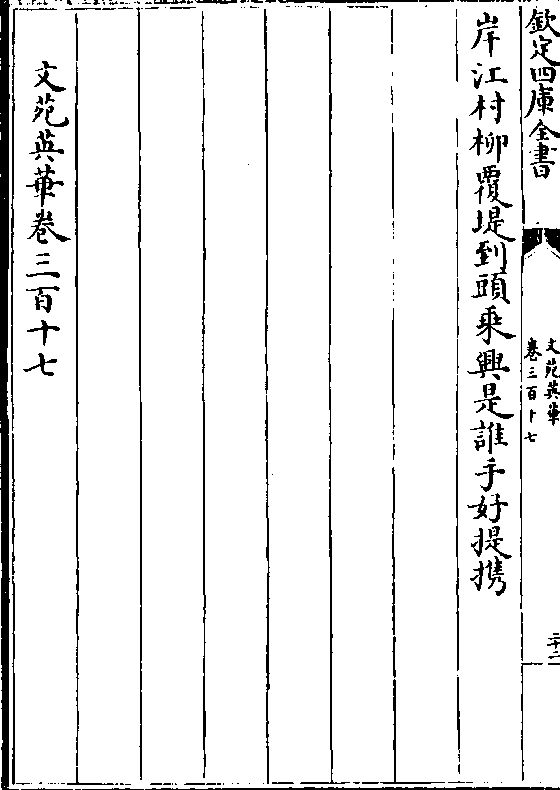 欽定四庫全書
文苑英華
卷三百十七
二十二
岸江村柳覆堤到頭乘興是誰手好提携
文苑英華卷三百十七